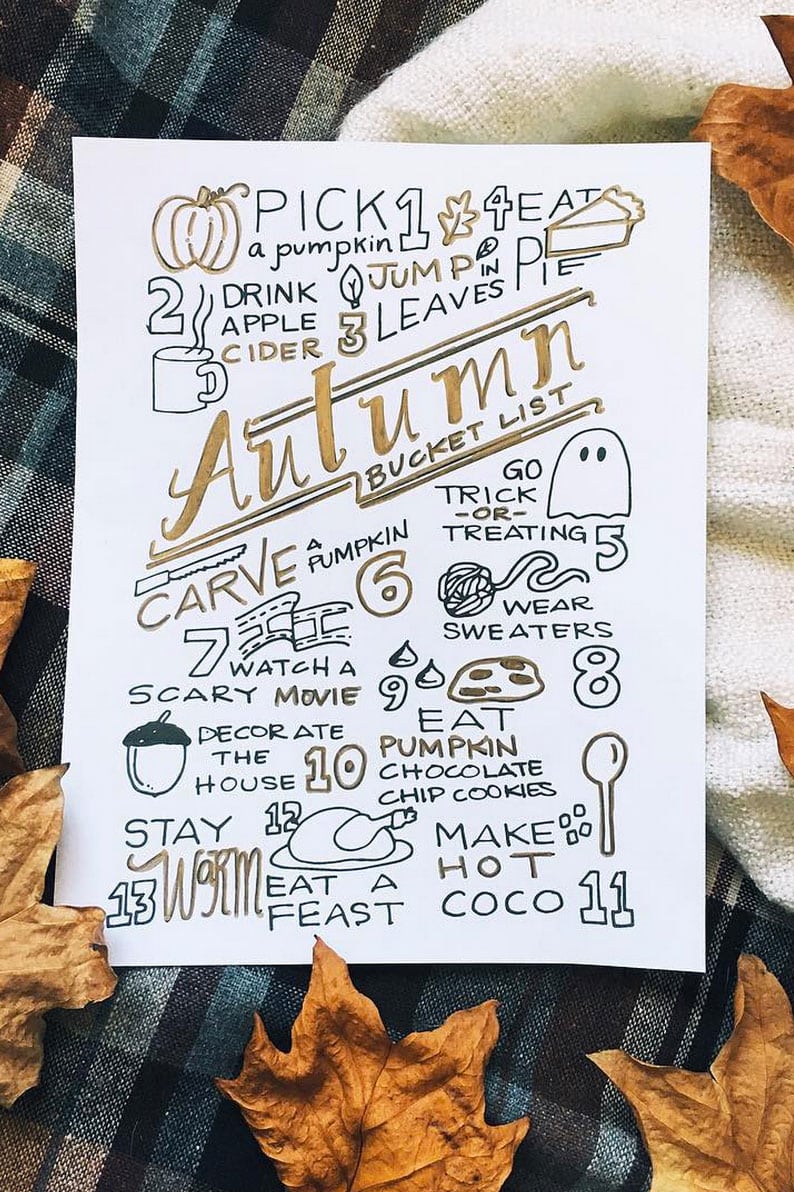 PICK 1
a pumpkin
4 EAT
PIE
2 DRINK
APPLE
CIDER
3 JUMP IN
LEAVES
Autumn
BUCKET LIST
GO
TRICK
-OR-
TREATING 5
CARVE A PUMPKIN
6
WEAR
SWEATERS
8
7 WATCH A
SCARY MOVIE
9 EAT
PUMPKIN
CHOCOLATE
CHIP COOKIES
DECORATE
THE
HOUSE 10
MAKE
HOT
COCO 11
12
EAT A
FEAST
STAY
13 WARM